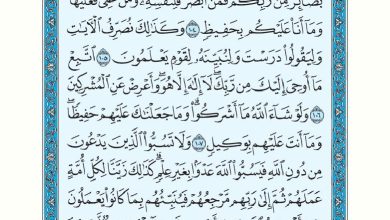 بَصَآئِرُ مِن رَّبِّكُمْ فَمَنْ أَبْصَرَ فَلِنَفْسِهِۦ وَمَنْ عَمِىَ فَعَلَيْهَا
وَمَآ أَنَا۠ عَلَيْكُم بِحَفِيظٍ ١٠٤ وَكَذَٰلِكَ نُصَرِّفُ ٱلْءَايَٰتِ
وَلِيَقُولُوا۟ دَرَسْتَ وَلِنُبَيِّنَهُۥ لِقَوْمٍ يَعْلَمُونَ ١٠٥ ٱتَّبِعْ
مَآ أُوحِىَ إِلَيْكَ مِن رَّبِّكَ لَآ إِلَٰهَ إِلَّا هُوَ وَأَعْرِضْ عَنِ ٱلْمُشْرِكِينَ
١٠٦ وَلَوْ شَآءَ ٱللَّهُ مَآ أَشْرَكُوا۟ وَمَا جَعَلْنَٰكَ عَلَيْهِمْ حَفِيظًا
وَمَآ أَنتَ عَلَيْهِم بِوَكِيلٍ ١٠٧ وَلَا تَسُبُّوا۟ ٱلَّذِينَ يَدْعُونَ
مِن دُونِ ٱللَّهِ فَيَسُبُّوا۟ ٱللَّهَ عَدْوًۢا بِغَيْرِ عِلْمٍ كَذَٰلِكَ زَيَّنَّا لِكُلِّ أُمَّةٍ
عَمَلَهُمْ ثُمَّ إِلَىٰ رَبِّهِم مَّرْجِعُهُمْ فَيُنَبِّئُهُم بِمَا كَانُوا۟ يَعْمَلُونَ